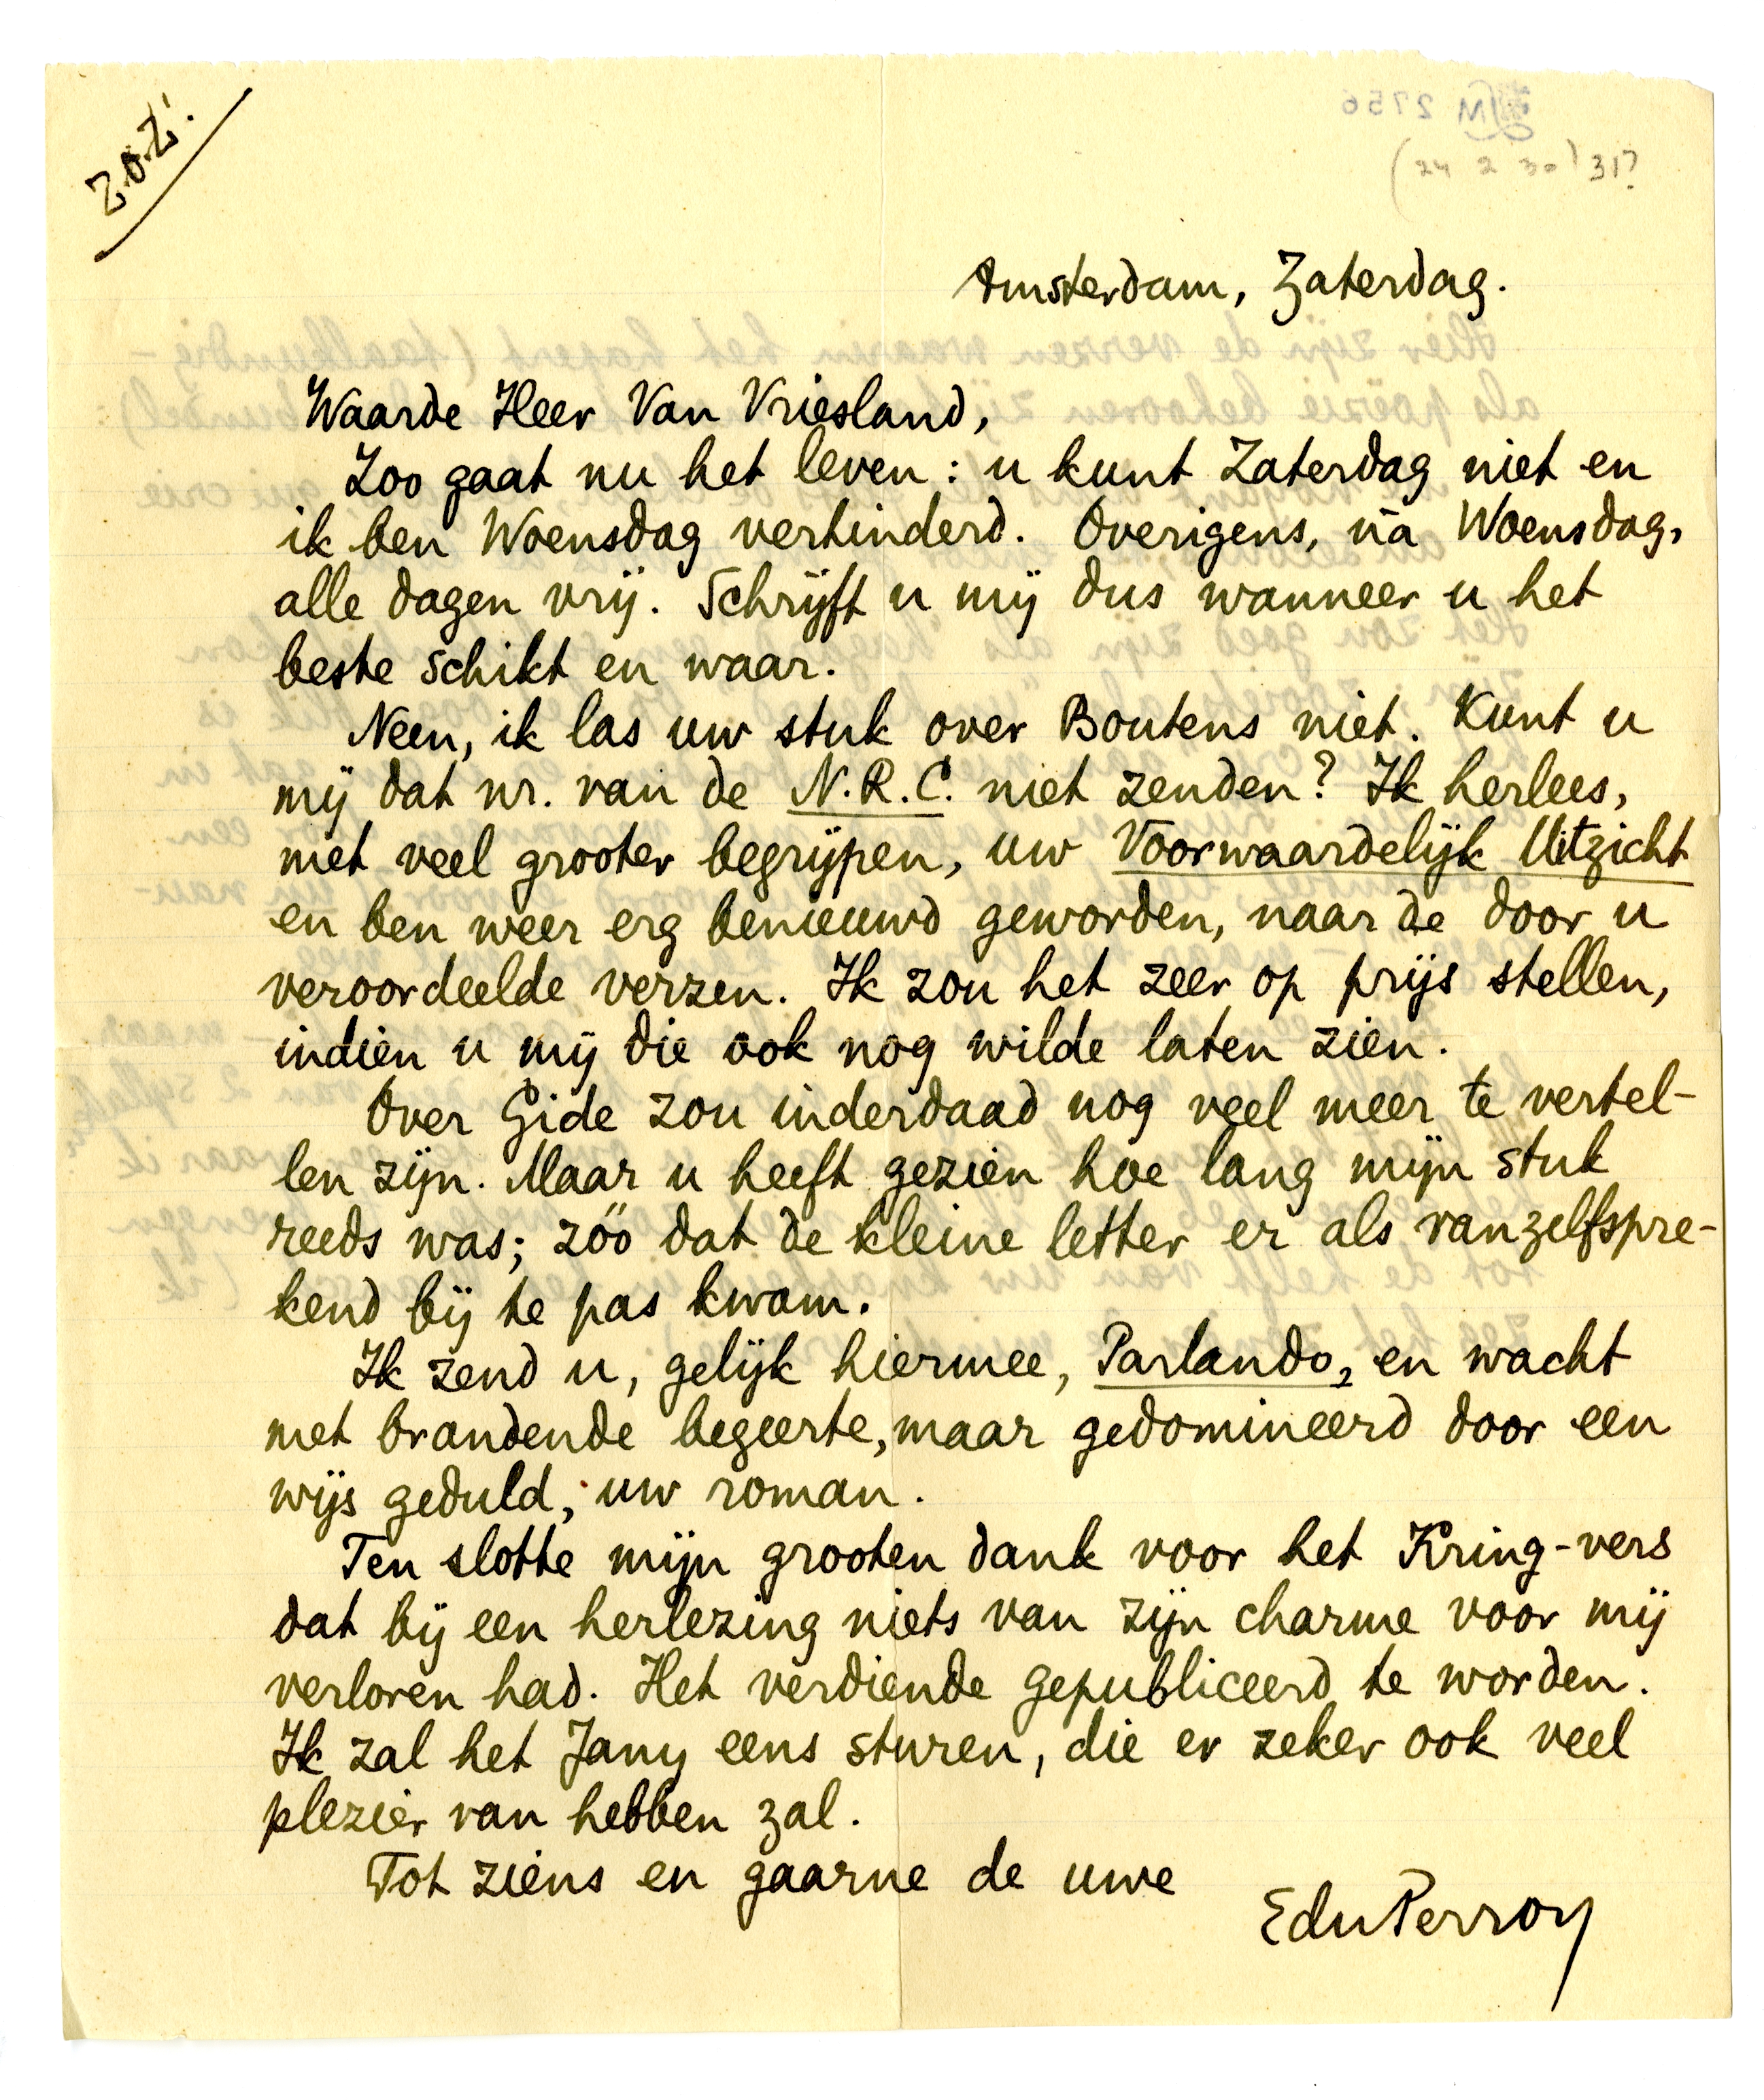 Z.O.Z!
LM 2756
(24 2 30) 31?
Amsterdam, Zaterdag.
Waarde Heer Van Vriesland,
Zoo gaat nu het leven: u kunt Zaterdag niet en
ik ben Woensdag verhinderd. Overigens, ná Woensdag,
alle dagen vrij. Schrijft u mij dus wanneer u het
beste schikt en waar.
Neen, ik las uw stuk over Boutens niet. Kunt u
mij dat nr. van de N.R.C. niet zenden? Ik herlees,
met veel grooter begrijpen, uw Voorwaardelijk Uitzicht
en ben weer erg benieuwd geworden, naar de door u
veroordeelde verzen. Ik zou het zeer op prijs stellen,
indien u mij die ook nog wilde laten zien.
Over Gide zou inderdaad nog veel meer te vertel-
len zijn. Maar u heeft gezien hoe lang mijn stuk
reeds was; zóó dat de kleine letter er als vanzelfspre-
kend bij te pas kwam.
Ik zend u, gelijk hiermee, Parlando, en wacht
met brandende begeerte, maar gedomineerd door een
wijs geduld, uw roman.
Ten slotte mijn grooten dank voor het Kring-vers
dat bij een herlezing niets van zijn charme voor mij
verloren had. Het verdiende gepubliceerd te worden.
Ik zal het Jany eens sturen, die er zeker ook veel
plezier van hebben zal.
Tot ziens en gaarne de uwe
EduPerron